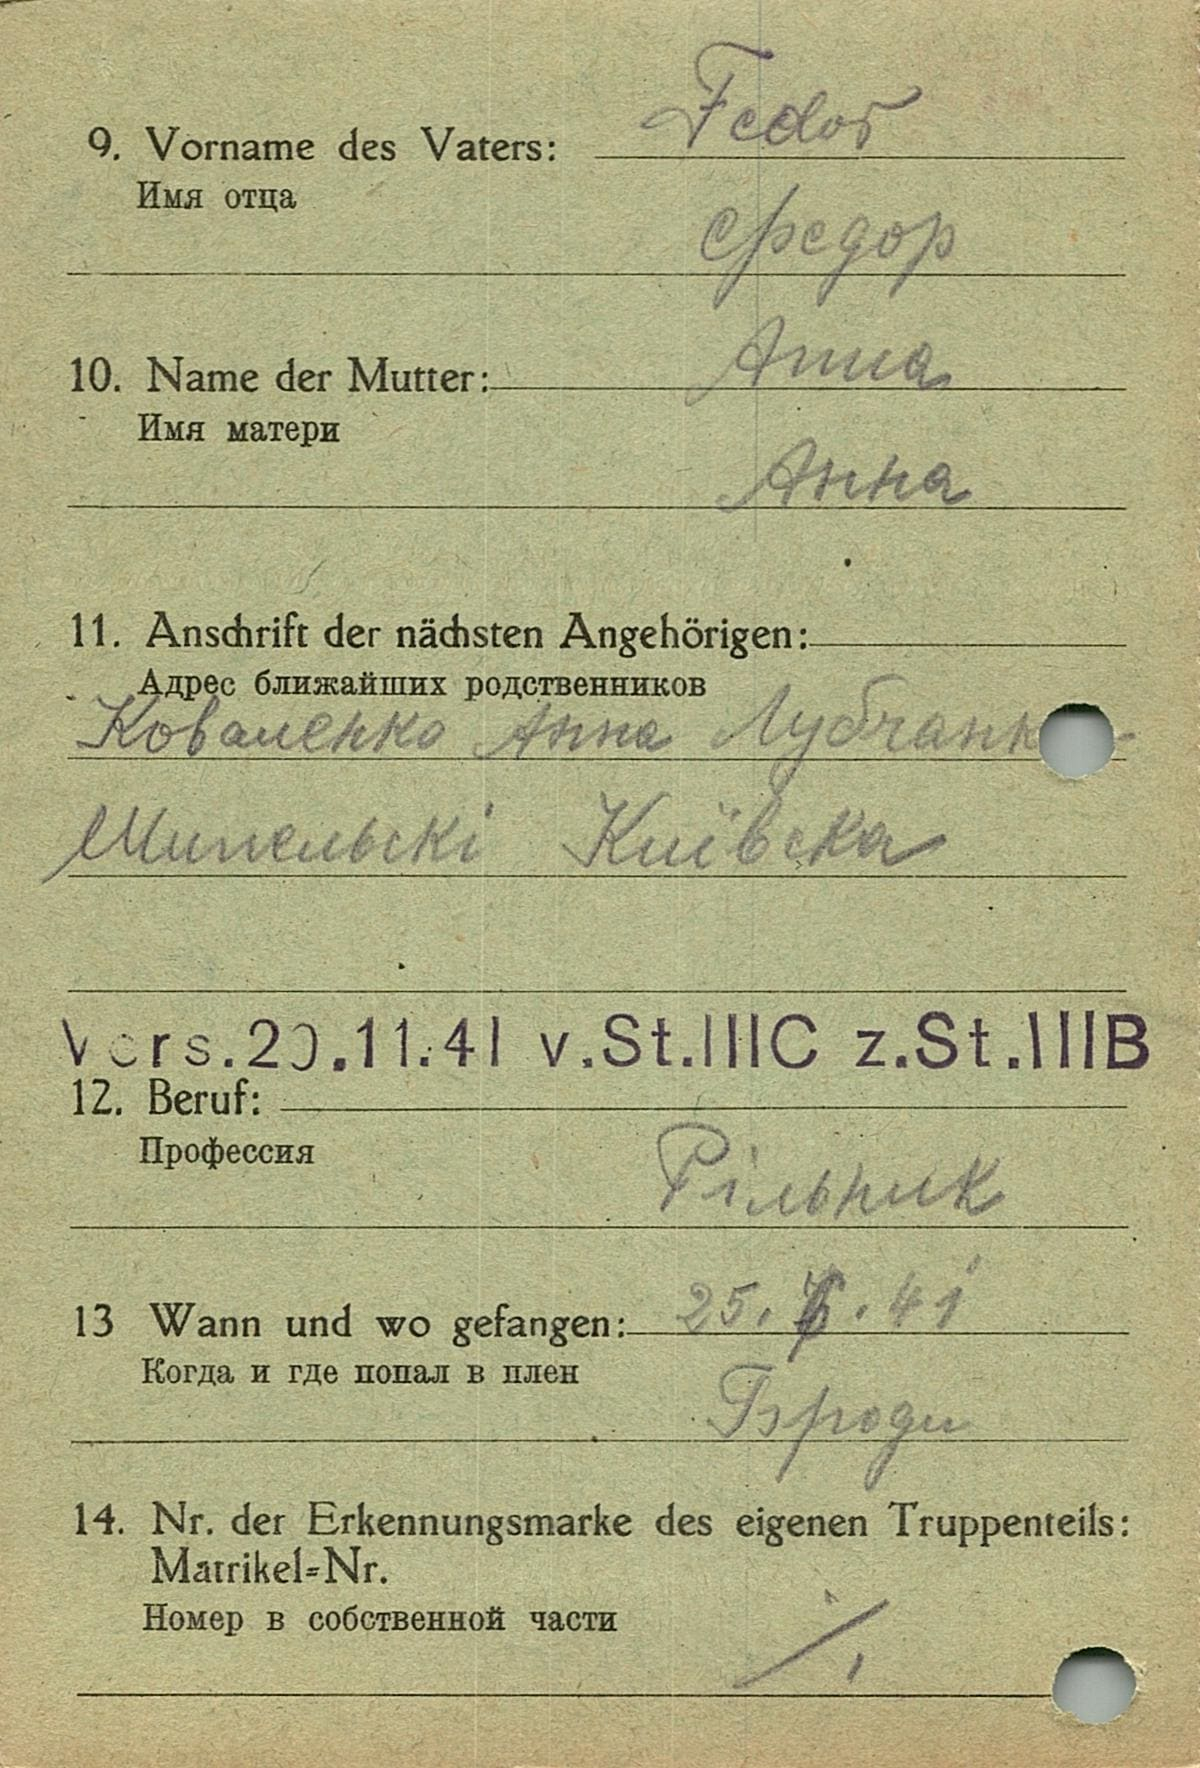 9. Vorname des Vaters: Fedor
Имя отца
Федор
10. Name der Mutter: Anna
Имя матери
Анна
11. Anschrift der nächsten Angehörigen:
Адрес ближайших родственников
Коваленко Анна
Київска
Vers.20.11.41 v.St.IIIC z.St.IIIB
12. Beruf:
Профессия
Рільник
13 Wann und wo gefangen: 25. . 41
Когда и где попал в плен
Броди
14. Nr. der Erkennungsmarke des eigenen Truppenteils:
Matrikel=Nr.
Номер в собственной части